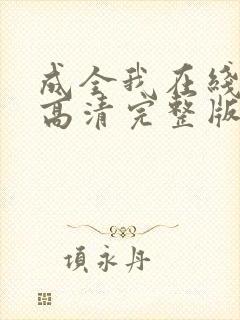 成全我在线
高清完整版
项永丹